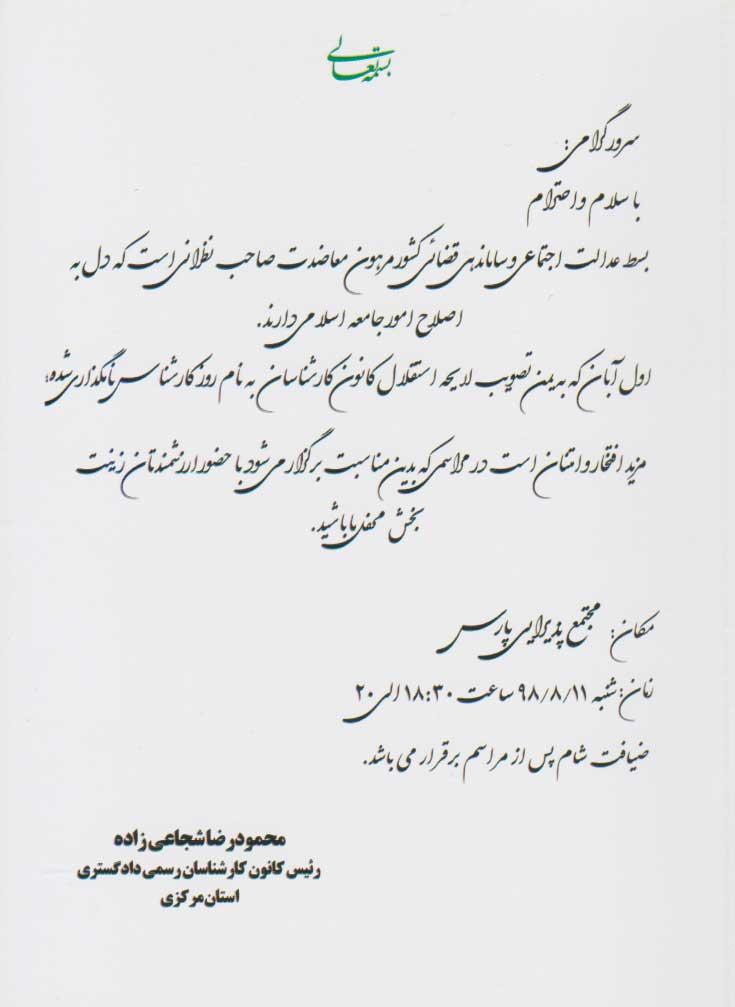 بسمه تعالی
سرور گرامی:
با سلام و احترام
بسط عدالت اجتماعی و ساماندهی قضائی کشور مرهون معاضدت صاحب نظرانی است که دل به
اصلاح امور جامعه اسلامی دارند.
اول آبان که به یمن تصویب لایحه استقلال کانون کارشناسان به نام روز کارشناس نامگذاری شده؛
مزید افتخار و امتنان است در مراسمی که بدین مناسبت برگزار می شود با حضور ارزشمندتان زینت
بخش محفل ما باشید.
مکان: مجتمع پذیرایی پارس
زمان: شنبه ۹۸/۸/۱۱ ساعت ۱۸:۳۰ الی ۲۰
ضیافت شام پس از مراسم برقرار می باشد.
محمودرضا شجاعی زاده
رئیس کانون کارشناسان رسمی دادگستری
استان مرکزی